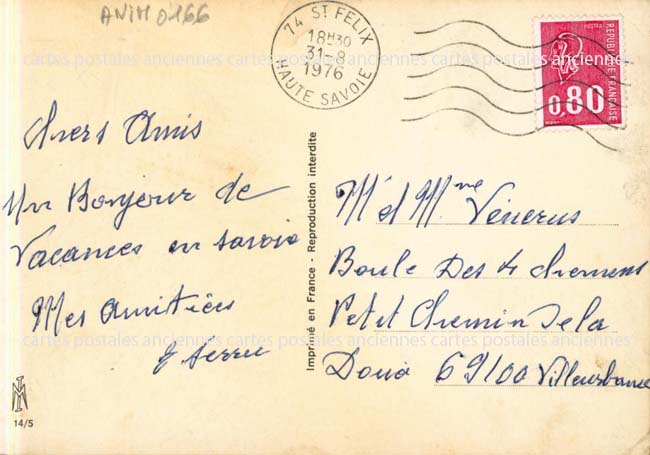 ANIM 0166
74 ST FELIX
18H30
31-8
1976
HAUTE SAVOIE
POSTES
REPUBLIQUE FRANCAISE
0,80
cartes postales anciennes cartes postales anciennes cartes postales anciennes
chers Amis
Un Bonjour de
Vacances en Savoie
Mes Amitiées
Imprimé en France - Reproduction interdite
Mr et Mme Vénerus
Boule Des 4 chemens
Petit Chemin de la
Doua 69100 Villeurbanne
cartes postales anciennes cartes postales anciennes cartes postales anciennes
14/5